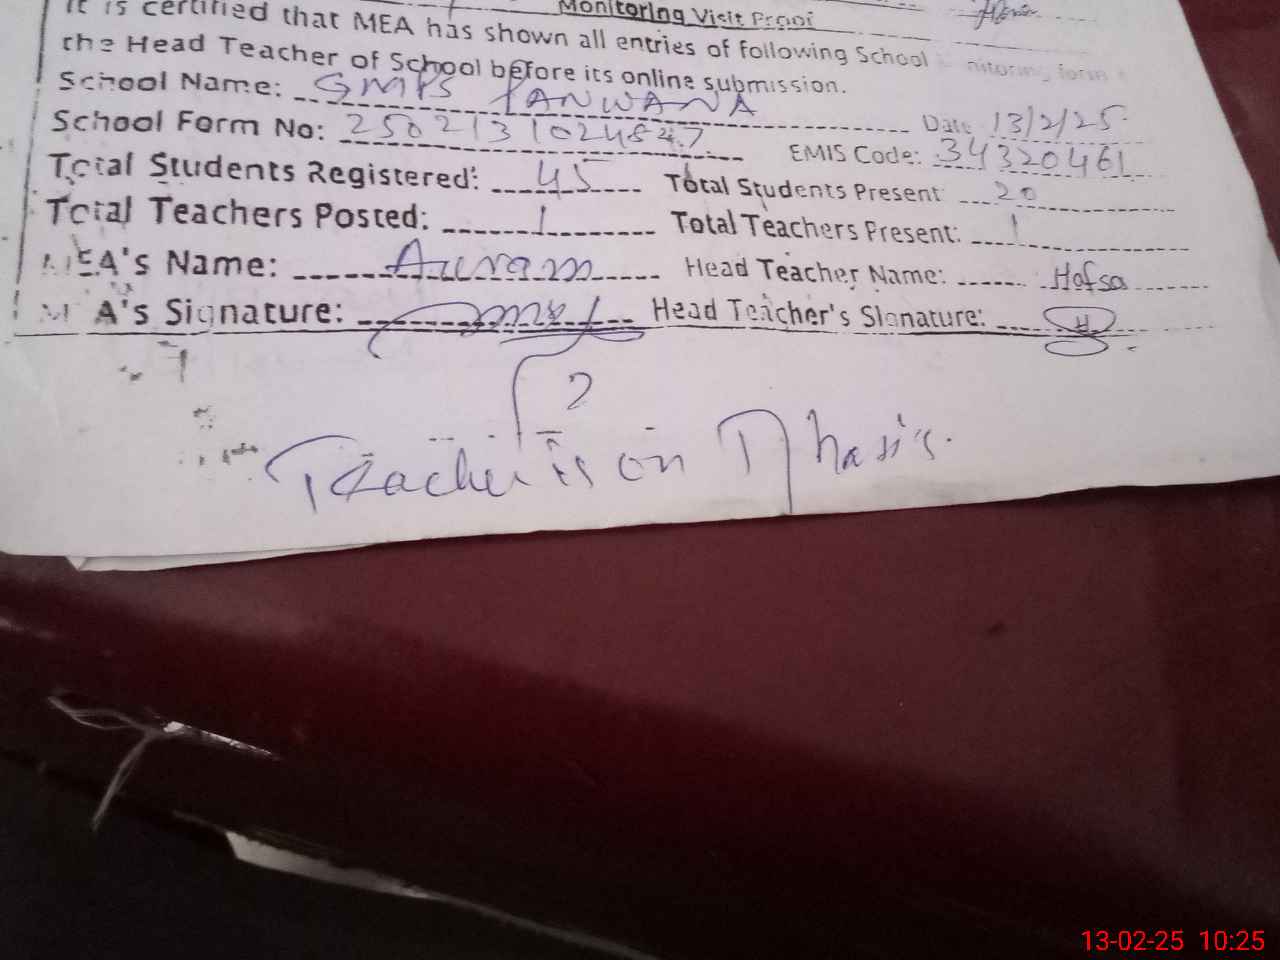 Monitoring Visit Proof
It is certified that MEA has shown all entries of following School monitoring form
the Head Teacher of School before its online submission.
School Name: GMPS PANWANA Date 13/2/25
School Form No: EMIS Code: 34320461
Total Students Registered: 45 Total Students Present 20
Total Teachers Posted: 1 Total Teachers Present: 1
MEA's Name: Head Teacher Name: Hafsa
MEA's Signature: Head Teacher's Signature: H
Teacher is on
13-02-25 10:25